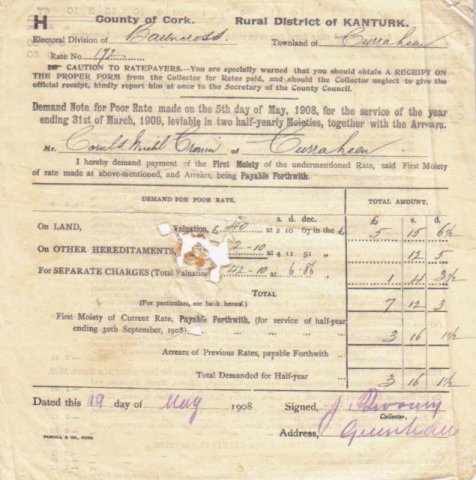 H County of Cork. Rural District of KANTURK.
Electoral Division of Barnacross Townland of Curraheen
Rate No. 172
CAUTION TO RATEPAYERS.—You are specially warned that you should obtain A RECEIPT ON
THE PROPER FORM from the Collector for Rates paid, and should the Collector neglect to give the
official receipt, kindly report him at once to the Secretary of the County Council.
Demand Note for Poor Rate made on the 5th day of May, 1908, for the service of the year
ending 31st of March, 1909, leviable in two half-yearly Moieties, together with the Arrears.
Mr. Cronin of Curraheen
I hereby demand payment of the First Moiety of the undermentioned Rate, said First Moiety
of rate made as above-mentioned, and Arrears, being Payable Forthwith.
DEMAND FOR POOR RATE. TOTAL AMOUNT.
s. d. dec. £ s. d.
On LAND, Valuation, £ 40 at 2 10 67 in the £ 5 15 6½
On OTHER HEREDITAMENTS 2-10 at 4 11 51 „ 12 5
For SEPARATE CHARGES (Total Valuation 42-10 at 6·86 „ 1 4 3½
TOTAL
(For particulars, see back hereof.) 7 12 3
First Moiety of Current Rate, Payable Forthwith, (for service of half-year
ending 30th September, 1908) 3 16 1½
Arrears of Previous Rates, payable Forthwith
Total Demanded for Half-year 3 16 1½
Dated this 19 day of May 1908 Signed, J.
Collector.
Address,
PURCELL & CO., CORK.